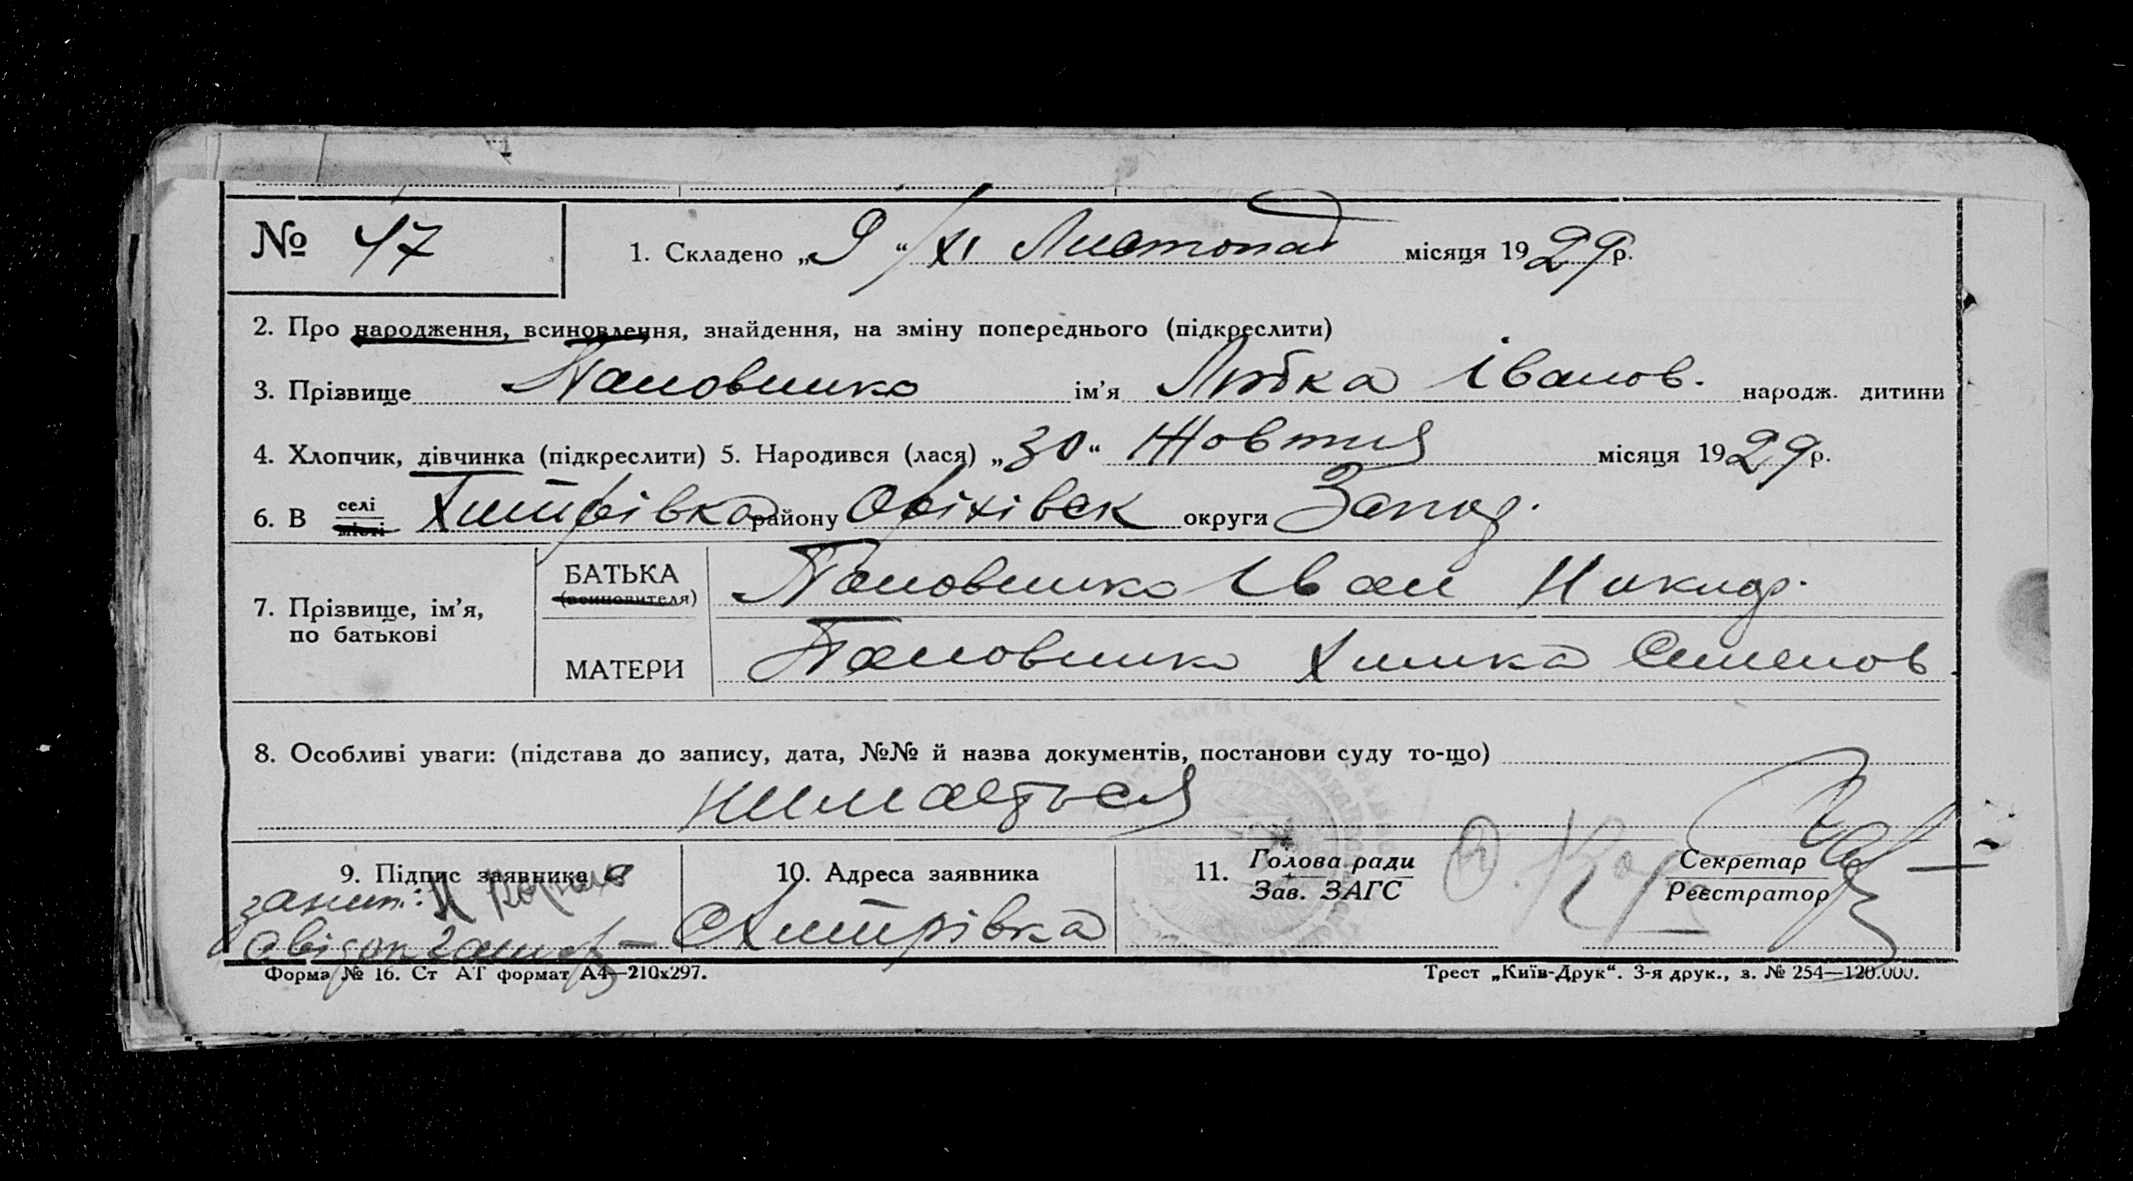 № 47
1. Складено „9“/XI Листопад місяця 1929 р.
2. Про народження, всиновлення, знайдення, на зміну попереднього (підкреслити)
3. Прізвище Пановшко ім’я Любка Іванов. народж. дитини
4. Хлопчик, дівчинка (підкреслити) 5. Народився (лася) „30“ Жовтня місяця 1929 р.
6. В селі місті району Оріхівськ округи Запор.
7. Прізвище, ім’я, по батькові
БАТЬКА (всиновителя) Пановшко Іван Никиф.
МАТЕРИ Пановшко Химка Семенов.
8. Особливі уваги: (підстава до запису, дата, №№ й назва документів, постанови суду то-що)
Нимається
9. Підпис заявника
10. Адреса заявника
11. Голова ради
Зав. ЗАГС
Секретар
Реєстратор
Форма № 16. Ст АТ формат А4—210х297.
Трест „Київ-Друк“. 3-я друк., з. № 254—120.000.